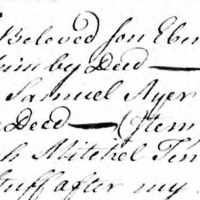 Beloved son Eben
him by Deed —
Samuel Ayer
Deed — (Item
h Mitchel Ten
stuff after my